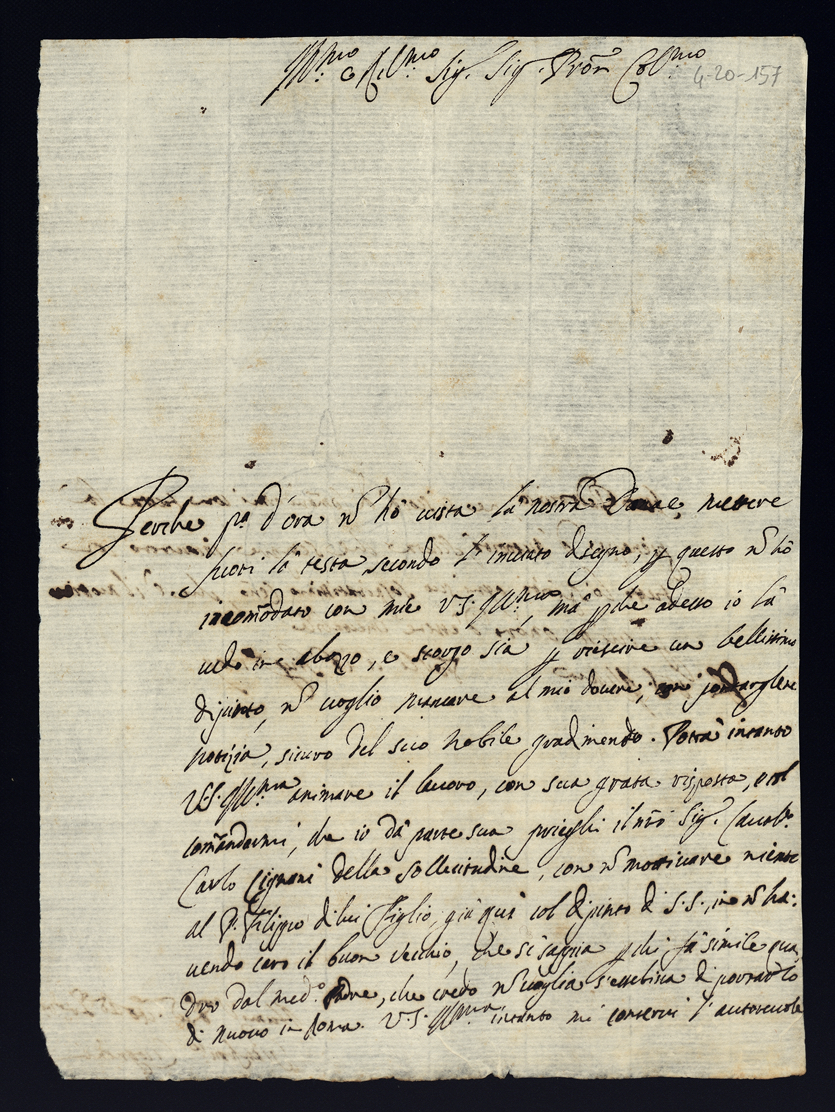 Ill.mo e Ill.mo Sig. Sig. Pron Col.mo
4-20-157
Perche p.a d'ora nõ hò vista la nostra Danae mettere
fuori la testa secondo l' disegno, p questo nõ hò
incomõdato con mie V.S. Ill.ma, ma p che adesso io la
vedo in abozo, e scorgo sia p riescire un bellissimo
dipinto, nõ voglio mancare al mio dovere, con
notizia, sicuro del suo nobile gradimento. Potrà intanto
V.S. Ill.ma animare il lavoro, con sua grata risposta, e col
comãndarmi, che io da parte sua preghi il nrõ Sig. Caval.r
Carlo Cignani della sollecitudine, con nõ mottivare niente
al S. Filippo di lui Figlio, già qui col dipinto di S.S., io nõ ha:
vendo caro il buon vecchio, che si sappia p chi fà simile qua
dro dal med.o Padre, che credo nõ voglia s'essebisca di portarlo
di nuovo in Roma. V.S. Ill.ma intanto mi conservi l'autorevole